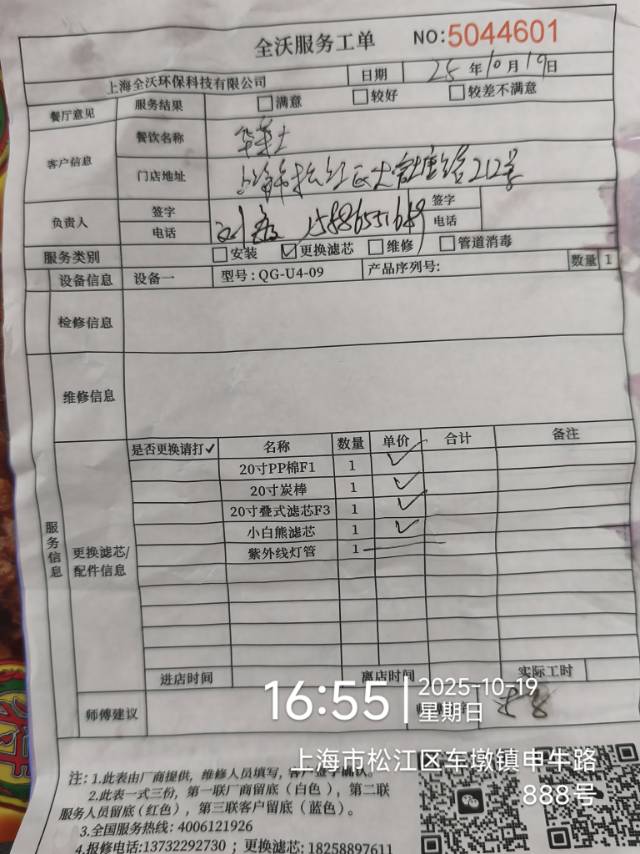 全沃服务工单 NO:5044601
上海全沃环保科技有限公司 日期 25年10月19日
餐厅意见 服务结果 满意 较好 较差不满意
客户信息 餐饮名称 华莱士
门店地址 上海市松江区 路212号
负责人 签字 签字
电话 电话
服务类别 安装 ✓更换滤芯 维修 管道消毒
设备信息 设备一 型号:QG-U4-09 产品序列号: 数量 1
检修信息
维修信息
服务信息
更换滤芯/配件信息
是否更换请打✓ 名称 数量 单价 合计 备注
20寸PP棉F1 1 ✓
20寸炭棒 1 ✓
20寸叠式滤芯F3 1 ✓
小白熊滤芯 1 ✓
紫外线灯管 1
进店时间 离店时间 实际工时
师傅建议
16:55 2025-10-19
星期日
上海市松江区车墩镇申牛路
888号
注: 1.此表由厂商提供，维修人员填写，客户签字确认。
2.此表一式三份，第一联厂商留底（白色），第二联
服务人员留底(红色），第三联客户留底（蓝色）。
3.全国服务热线: 4006121926
4.报修电话:13732292730 ；更换滤芯: 18258897611